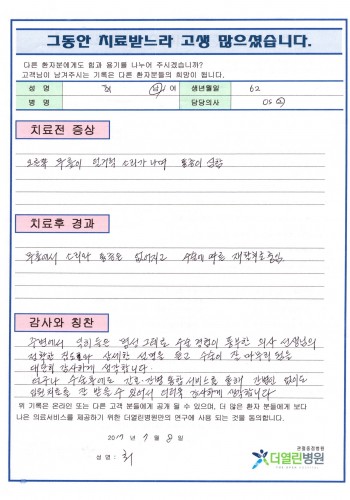 그동안 치료받느라 고생 많으셨습니다.
다른 환자분에게도 힘과 용기를 나누어 주시겠습니까?
고객님이 남겨주시는 기록은 다른 환자분들의 희망이 됩니다.
성 명 최 여 생년월일 62
병 명 담당의사 OS
치료전 증상
오른쪽 무릎이 삐거덕 소리가 나며 통증이 심함
치료후 경과
무릎에서 소리와 통증은 없어지고
감사와 칭찬
주변에서 명성 그대로 수술 경험이 풍부한 의사 선생님의
정확한 진도와 상세한 설명을 듣고 수술이 잘 마무리 되어
대단히 감사하게 생각합니다
수술후에도 간호·간병 통합서비스를 통해 간병인 없이도
입원치료를 잘 받을 수 있어서 감사하게 생각합니다
위 기록은 온라인 또는 다른 고객 분들에게 공개 될 수 있으며, 더 많은 환자 분들에게 보다
나은 의료서비스를 제공하기 위한 더열린병원만의 연구에 사용 되는 것을 동의합니다.
2017 년 7 월 8 일
성 명 : 최
관절중점병원
더열린병원